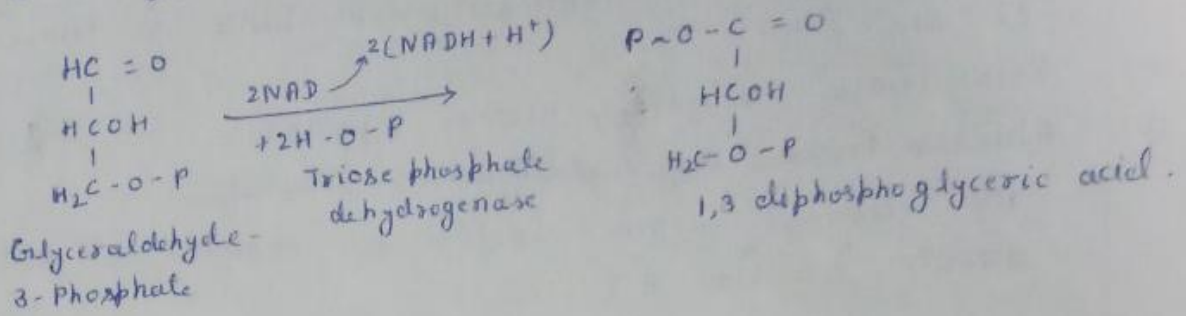 HC = O
|
HCOH
|
H₂C - O - P
Glyceraldehyde-
3-Phosphate
2NAD
2(NADH + H⁺)
+2H - O - P
Triose phosphate
dehydrogenase
P ~ O - C = O
|
HCOH
|
H₂C - O - P
1,3 diphosphoglyceric acid.